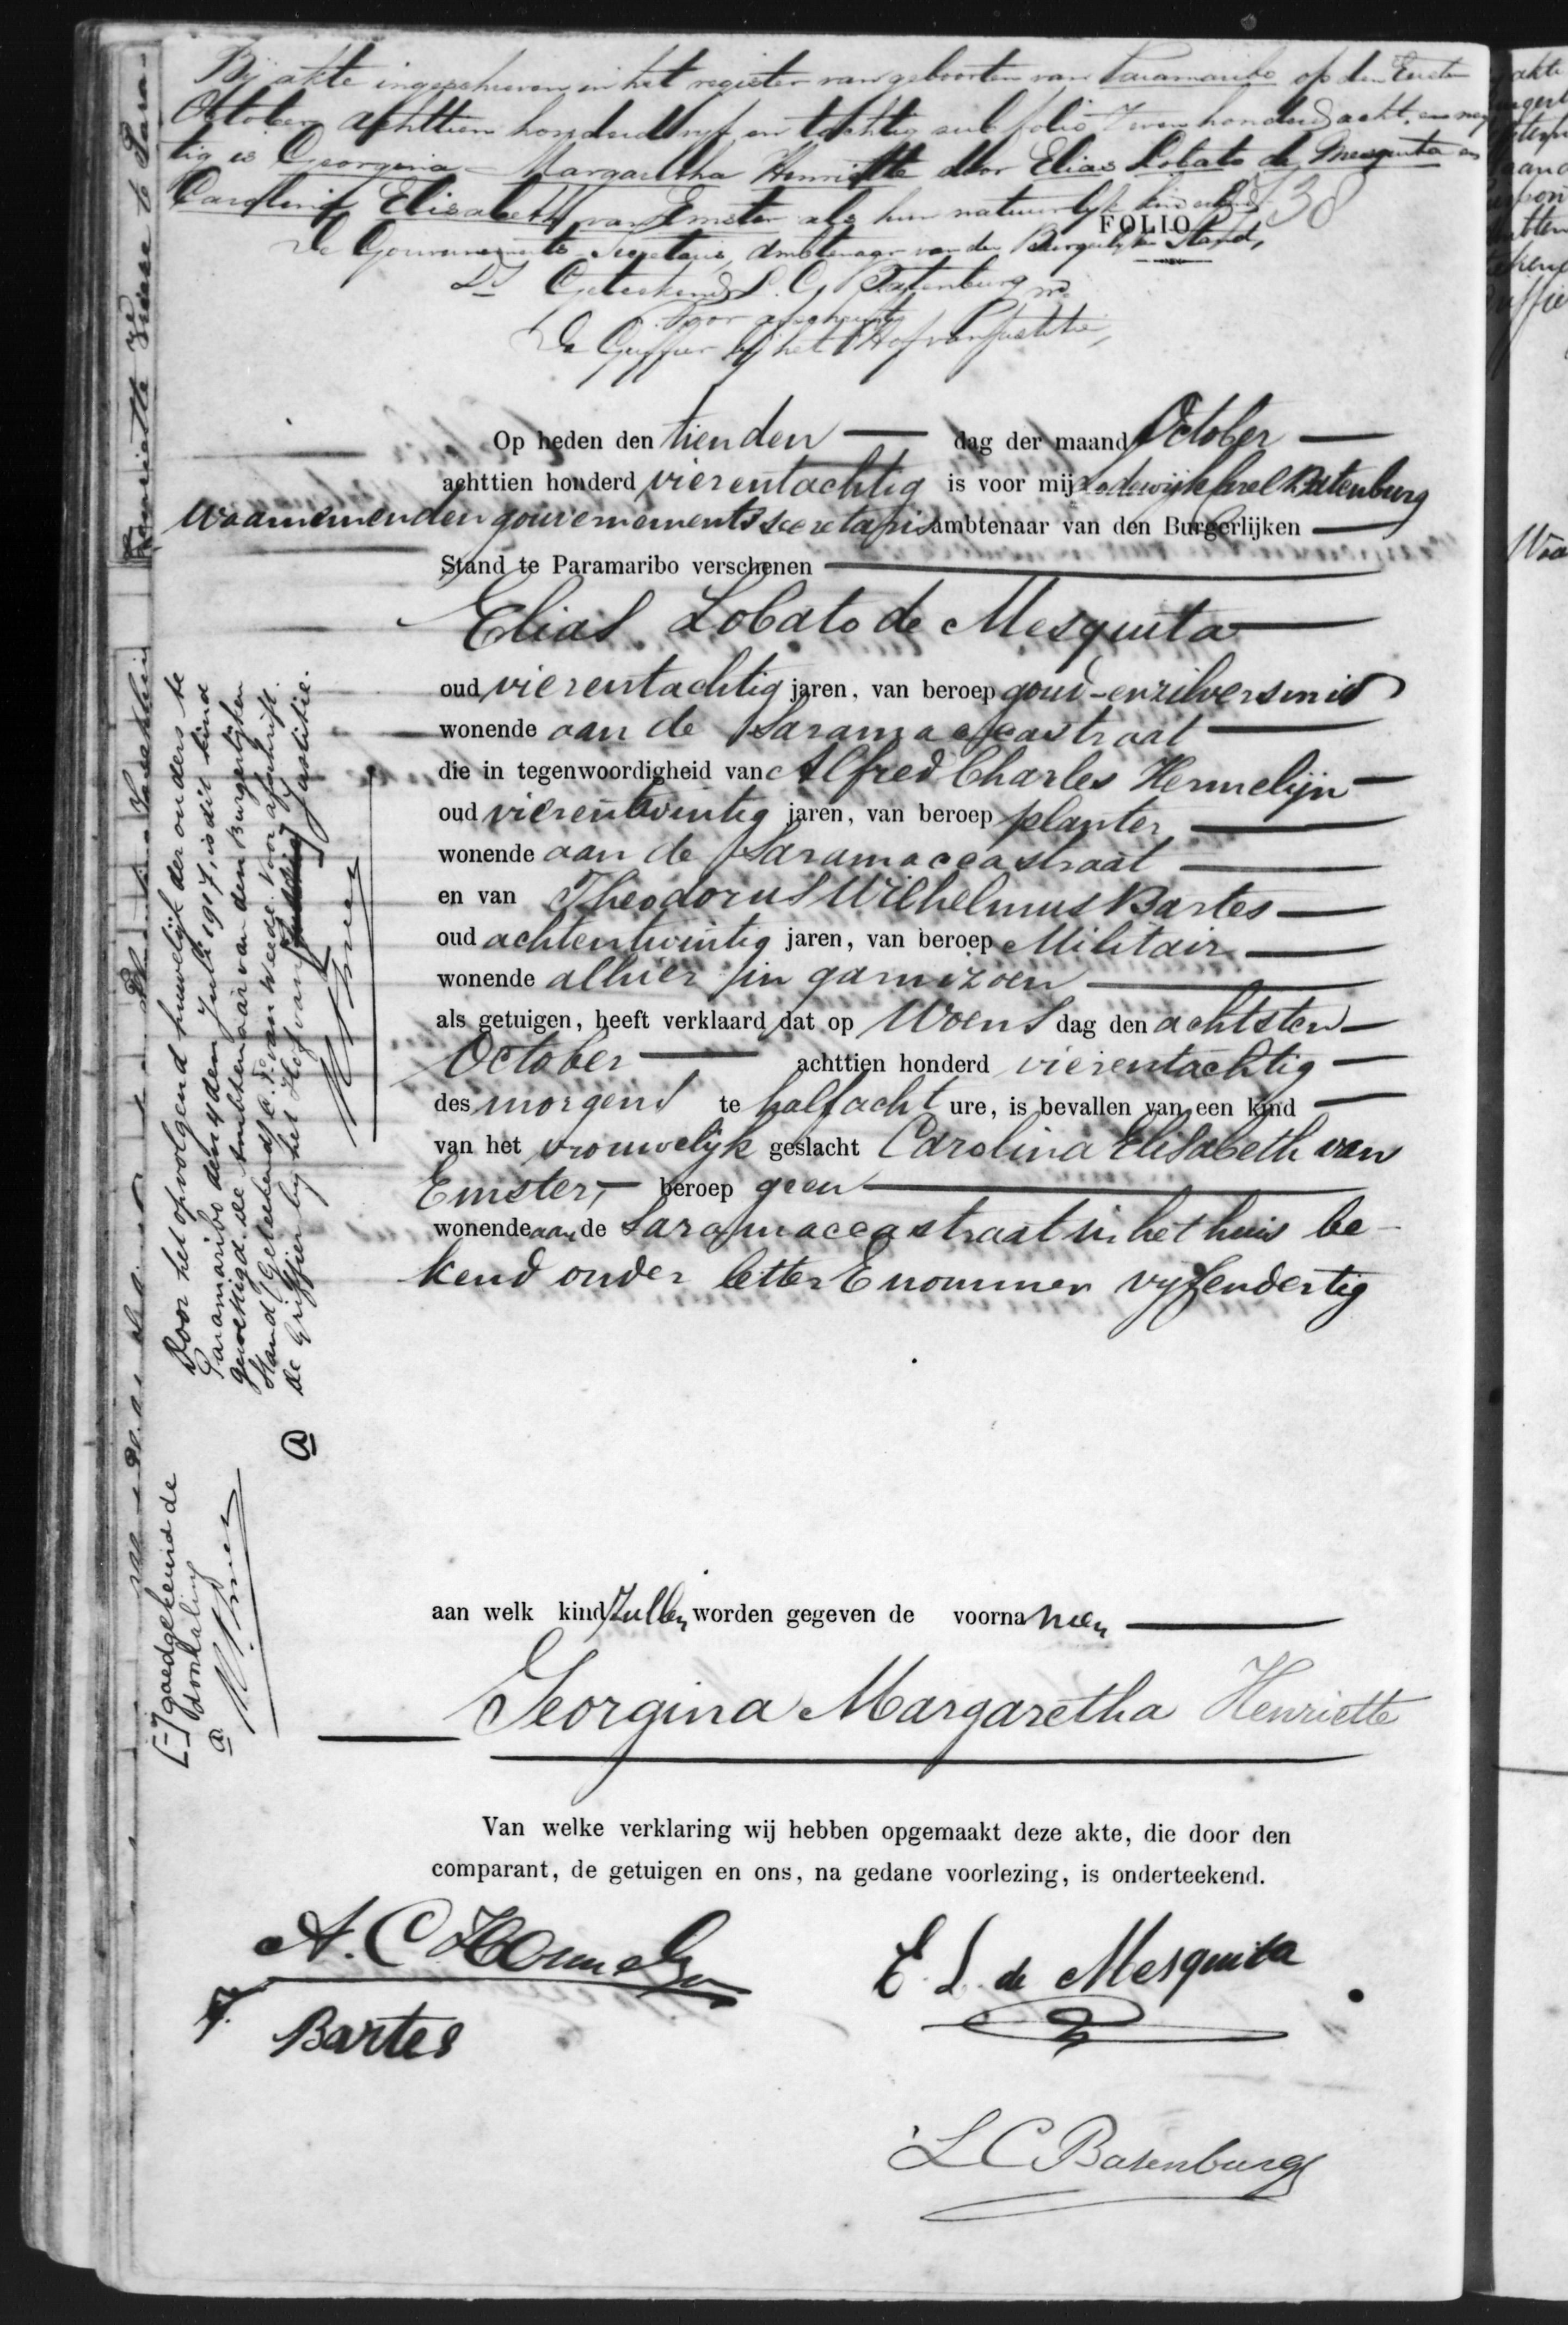 Bij akte ingeschreven in het register van geboorten van Paramaribo op den Eersten
October achttien honderd vijf en tachtig sub folio zeven honderd acht en neg
tig is Georgina Margaretha Henriette door Elias Lobato de Mesquita en
Carolina Elisabeth van Emster als hun natuurlijk kind erkend
FOLIO 738
De Gouvernements Secretaris, Ambtenaar van den Burgerlijken Stand,
Geteekend L. C. Batenburg
Voor afschrift
De Griffier bij het Hof van Justitie,
Op heden den tienden dag der maand October
achttien honderd vierentachtig is voor mij Lodewijk Carel Batenburg
Waarnemenden gouvernements secretaris ambtenaar van den Burgerlijken
Stand te Paramaribo verschenen
Elias Lobato de Mesquita
oud vierentachtig jaren, van beroep goud-en zilversmid
wonende aan de Saramaccastraat
die in tegenwoordigheid van Alfred Charles Hermelijn
oud vierentwintig jaren, van beroep planter
wonende aan de Saramaccastraat
en van Theodorus Wilhelmus Bartes
oud achtentwintig jaren, van beroep Militair
wonende alhier in garnizoen
als getuigen, heeft verklaard dat op Woensdag den achtsten
October achttien honderd vierentachtig
des morgens te half acht ure, is bevallen van een kind
van het vrouwelijk geslacht Carolina Elisabeth van
Emster, beroep geen
wonende aan de Saramaccastraat in het huis be-
kend onder letter E nommer vijfendertig
aan welk kind zullen worden gegeven de voornamen
Georgina Margaretha Henriette
Van welke verklaring wij hebben opgemaakt deze akte, die door den
comparant, de getuigen en ons, na gedane voorlezing, is onderteekend.
A. C. Hermelijn
E. L. de Mesquita
T. Bartes
L C Batenburg
Door het opvolgend huwelijk der ouders te
Paramaribo den 4den Juli 1917, is dit kind
gewettigd. De Ambtenaar van den Burgerlijken
Stand (Geteekend) C. F. van Weede. Voor afschrift.
De Griffier bij het Hof van Justitie.
[-] goedgekeurd de
doorhaling
Henriette